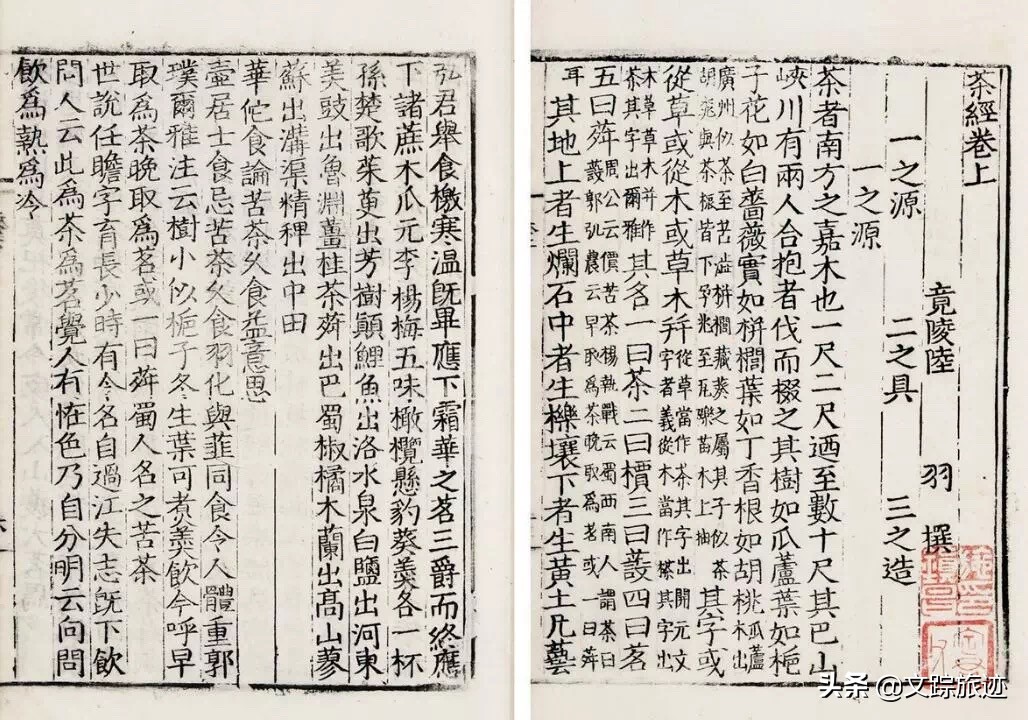 茶經卷上
竟陵陸 羽 撰
一之源 二之具 三之造
一之源
茶者南方之嘉木也一尺二尺迺至數十尺其巴山
峽川有兩人合抱者伐而掇之其樹如瓜蘆葉如梔
子花如白薔薇實如栟櫚葉如丁香根如胡桃瓜蘆木出
廣州似茶至苦澁栟櫚藏葵之屬其子似茶胡桃與茶根皆下孕兆至瓦礫苗木上抽其字或
從草或從木或草木并從草當作茶其字出開元文字者義從木當作搽其字出
本草草木并作荼其字出爾雅其名一曰茶二曰檟三曰蔎四曰茗
五曰荈周公云檟苦荼楊執戟云蜀西南人謂茶曰蔎郭弘農云早取爲茶晚取爲茗或一曰荈
耳其地上者生爛石中者生櫟壤下者生黃土凡藝
弘君舉食檄寒溫旣畢應下霜華之茗三爵而終應
下諸蔗木瓜元李楊梅五味橄欖懸豹葵羹各一杯
孫楚歌茱萸出芳樹顛鯉魚出洛水泉白鹽出河東
美豉出魯淵薑桂茶荈出巴蜀椒橘木蘭出高山蓼
蘇出溝渠精稗出中田
華佗食論苦荼久食益意思
壺居士食忌苦荼久食羽化與韮同食令人體重郭
璞爾雅注云樹小似梔子冬生葉可煮羹飲今呼早
取爲茶晚取爲茗或一曰荈蜀人名之苦荼
世說任瞻字育長少時有令名自過江失志旣下飲
問人云此爲茶爲茗覺人有怪色乃自分明云向問
飲爲熱爲冷
头条 @文踪旅迹